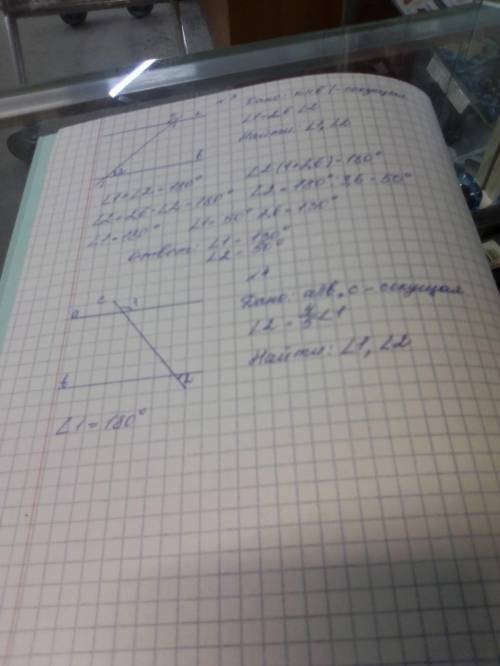 Дано: a∥b, l-секущая
∠1=2,6 ∠2
Найти: ∠1, ∠2
∠1+∠2=180°
∠2+2,6·∠2=180°
∠2(1+2,6)=180°
∠2=180°:3,6=50°
∠1=50°·2,6=130°
Ответ: ∠1=130°
∠2=50°
a
b
c
1
2
Дано: a∥b, c-секущая
∠2 = ∠1
Найти: ∠1, ∠2
∠1=180°